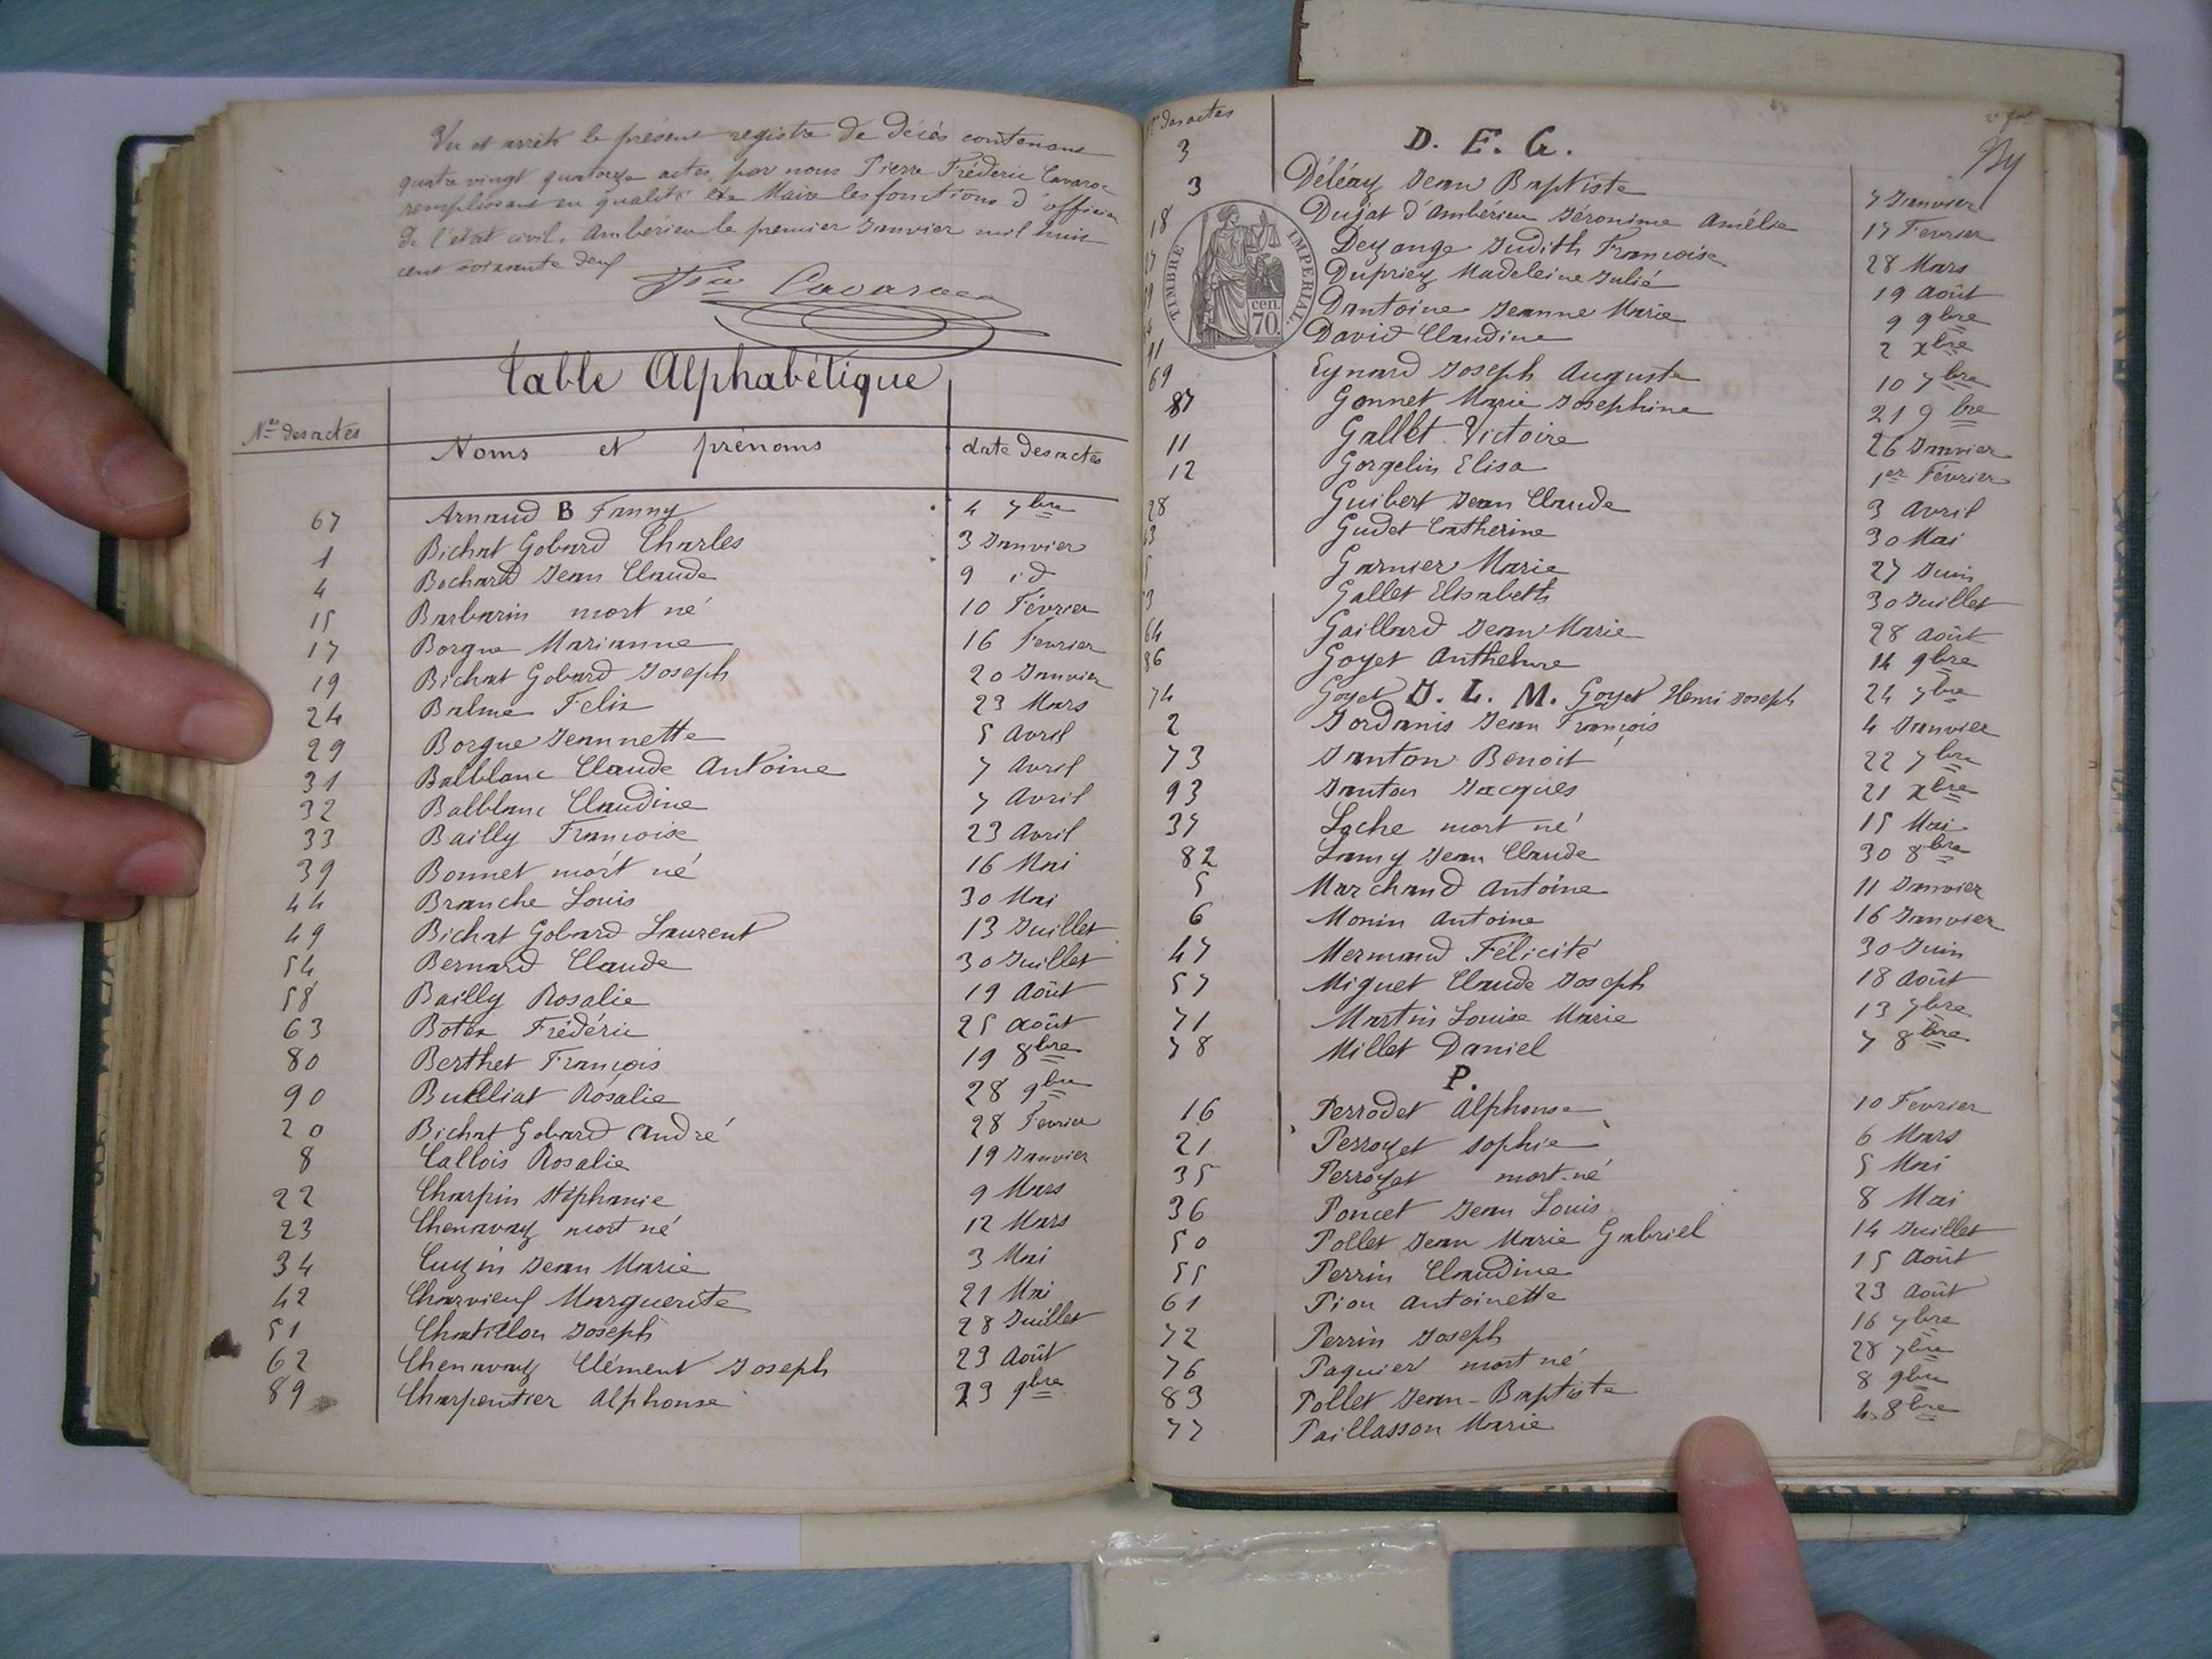 Vu et arrêté le présent registre de décès contenant
quatre vingt quatorze actes, par nous Pierre Fréderic Cavaroc
remplissant en qualité de Maire les fonctions d'officier
de l'état civil. Ambérieu le premier Janvier mil huit
cent soixante deux
Table Alphabétique
Nos des actes Noms et prénoms date des actes
67 Arnaud B Fanny 4 7bre
1 Bichat Gobard Charles 3 Janvier
4 Bochard Jean Claude 9 id
15 Barbarin mort né 10 Février
17 Borgue Marianne 16 Fevrier
19 Bichat Gobard Joseph 20 Janvier
24 Balme Felix 23 Mars
29 Borgue Jeannette 5 Avril
31 Balblanc Claude Antoine 7 Avril
32 Balblanc Claudine 7 Avril
33 Bailly Francoise 23 Avril
39 Bonnet mort né 16 Mai
44 Branche Louis 30 Mai
49 Bichat Gobard Laurent 13 Juillet
54 Bernard Claude 30 Juillet
58 Bailly Rosalie 19 Août
63 Botex Frédéric 25 août
80 Berthet François 19 8bre
90 Bulliat Rosalie 28 9bre
20 Bichat Gobard André 28 Fevrier
8 Callois Rosalie 19 Janvier
22 Charpin Stéphanie 9 Mars
23 Chenavaz mort né 12 Mars
34 Cuzin Jean Marie 3 Mai
42 Charvieux Marguerite 21 Mai
51 Chatillon Joseph 28 Juillet
62 Chenavaz Clément Joseph 23 Août
89 Charpentier Alphonse 23 9bre
Nos des actes
D. E. G.
3 Déléaz Jean Baptiste 7 Janvier
18 Dujat d'Ambérieu Jéronime Amélie 17 Fevrier
Dezange Judith Francoise 28 Mars
Dupriez Madeleine Julie 19 Août
Dantoine Jeanne Marie 9 9bre
David Claudine 2 xbre
69 Eynard Joseph Auguste 10 7bre
87 Gonnet Marie Josephine 21 9bre
11 Gallet Victoire 26 Janvier
12 Gorgelin Elisa 1er Février
28 Guibert Jean Claude 3 Avril
Gudet Catherine 30 Mai
Garnier Marie 27 Juin
Gallet Elisabeth 30 Juillet
64 Gaillard Jean Marie 28 Août
86 Goyet Anthelme 14 9bre
74 Goyet J. L. M. Goyet Henri Joseph 24 7bre
2 Jordanis Jean François 4 Janvier
73 Janton Benoit 22 7bre
93 Janton Jacques 21 xbre
37 Lache mort né 15 Mai
82 Lamy Jean Claude 30 8bre
5 Marchand Antoine 11 Janvier
6 Monin Antoine 16 Janvier
47 Mermand Félicité 30 Juin
57 Miguet Claude Joseph 18 Août
71 Martin Louise Marie 13 7bre
78 Millet Daniel 7 8bre
P.
16 Perrodet Alphonse 10 Fevrier
21 Perrozet Sophie 6 Mars
35 Perrozet mort-né 5 Mai
36 Poncet Jean Louis 8 Mai
50 Pollet Jean Marie Gabriel 14 Juillet
55 Perrin Claudine 15 Août
61 Pion Antoinette 23 Août
72 Perrin Joseph 16 7bre
76 Paquier mort né 28 7bre
83 Pollet Jean-Baptiste 8 9bre
77 Paillasson Marie 4 8bre
TIMBRE IMPERIAL
cen. 70.